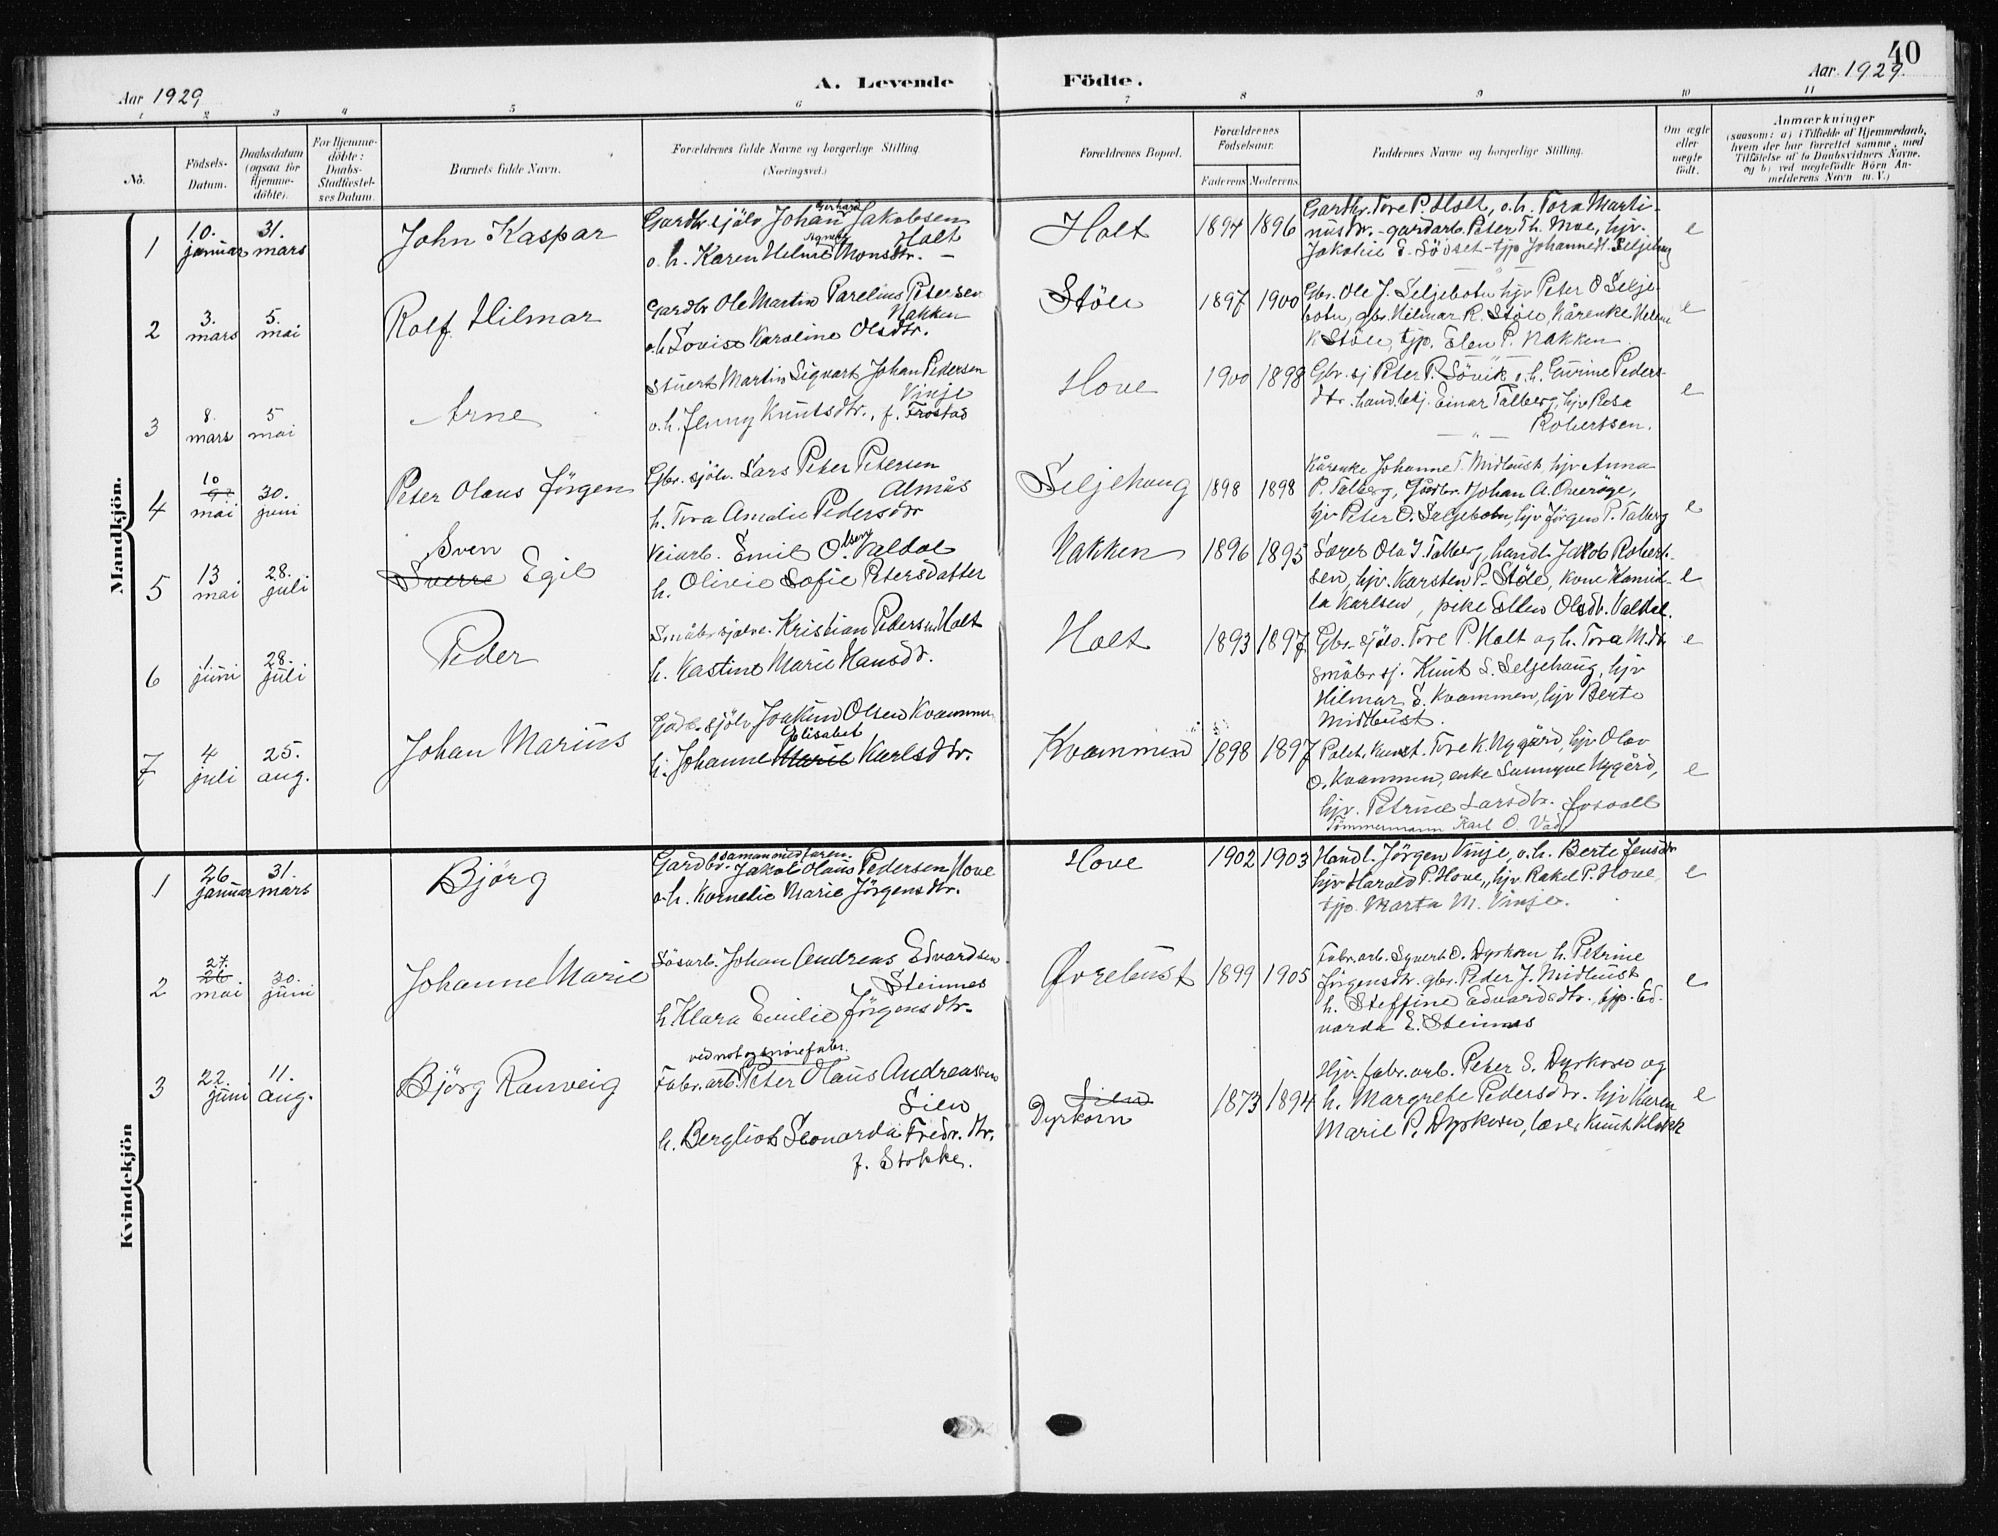 40
Aar 1929
A. Levende Födte.
Aar 1929
1 2 3 4 5 6 7 8 9 10 11
No.
Födsels-Datum.
Daabsdatum (ogsaa for Hjemme-döbte).
For Hjemme-döbte: Daabs-Stadfæstel-ses Datum.
Barnets fulde Navn.
Forældrenes fulde Navne og borgerlige Stilling (Næringsvei.)
Forældrenes Bopæl.
Forældrenes Födselsaar.
Faderens Moderens
Faddernes Navne og borgerlige Stilling.
Om ægte eller uægte födt.
Anmærkninger
(saasom: a) i Tilfælde af Hjemmedaab, hvem der har forrettet samme, med Tilföielse af to Daabsvidners Navne, og b) ved uægtefödte Börn An-melderens Navn m. V.)
Mandkjön.
1 10. januar 31. mars John Kaspar
Gardbr. sjölv Johan Gerhard Jakobsen Holt
o. h. Karen Helene Agnete Monsdtr. –
Holt 1897 1896
Gardbr. Tore P. Holt, o. h. Tora Marti-
nusdtr. - gardarb. Peter Th. Moe, hjv.
Jakobie E. Sövset - tjp Johanne M. Seljehaug
e
2 3. mars 5. mai Rolf Hilmar
Gardbr Ole Martin Parelius Petersen
Nakken
o. h. Lovise Karoline Olsdtr.
Störe 1897 1900
Gbr. Ole J. Seljebotn hjv Peter O Selje-
botn, gbr. Hilmar R. Störe, Kårenke Helene
K Störe, tjp. Elen P. Nakken
e
3 8. mars 5 mai Arne
Stuert Martin Sigvart Johan Pedersen
Vinje
o. h. Jenny Knutsdtr., f. Frostad
Hove 1900 1898
Gbr. sj Peter P. Sövik o. h. Gurine Peders-
dtr. handlbtj. Einar Talberg, hjv Rosa
Robertsen.
e
4 10 mai 30. juni Peter Olaus Jörgen
Gbr. sjölv. Lars Peter Petersen
Almås
h. Tora Amalie Pedersdtr
Seljehaug 1898 1898
Kårenke Johanne T. Midtbust, hjv Anna
P. Talberg, Gardbr. Johan A. Overöye,
hjv Peter O. Seljebotn, hjv Jörgen P. Talberg
e
5 13 mai 28. juli Sven
Sverre Egil
Veiarb. Emil O. Valdal
h. Olivie Sofie Petersdatter
Nakken 1896 1895
Lærer Ola J. Talberg, handl. Jakob Robert-
sen, hjv. Karsten P. Störe, kone Kamil-
la Karlsen, pike Ellen Olsdtr. Valdal.
e
6 1. juni 28. juli Peder
Småbr sjölve. Kristian Pedersen Holt
h. Kastine Marie Hansdtr.
Holt 1893 1897
Gbr. sjölv. Tore P. Holt og h. Tora M.dtr
småbr sj. Knut S. Seljehaug, hjv
Hilmar E. Kvammen, hjv Berte
Midtbust.
e
7 4 juli 25. aug. Johan Marius
Gårdb. sjölv Joakim Olsen Kvammen
Elisabet
h. Johanne Marie Karlsdtr.
Kvammen 1898 1897
Tore K. Nygård, hjv Olav
O. Kvammen, enke Sunnyve Nygård,
hjv. Petrine Larsdtr.
Tömmermann Karl O.
e
Kvindekjön
1 26 januar 31. mars Björg
saman med faren.
Gardbr. Jakob Olaus Pedersen Hove
o. h. Kornelie Marie Jörgensdtr.
Hove 1902 1903
Handl. Jörgen Vinje, o. h. Berte Jensdtr
hjv Harald P. Hove, hjv Rakel P. Hove,
tjp. Marta M. Vinje.
e
2 27. 26 mai 30. juni Johanne Marie
Johan Andreas Edvardsen
Steinnes
h Klara Emilie Jörgensdtr.
Övrebust 1899 1905
Fabr. arb. Syvert O. Dyrkorn h. Petrine
Jörgensdtr. gbr. Peder J. Midtbust
h. Steffine Edvardsdtr., tjp. Ed-
varda E. Steinnes
e
3 22. juni 11. aug. Björg Ranveig
ved not og snörefabr.
Fabr. arb. Peter Olaus Andreassen
Lien
h. Bergliot Leonarda Fredr. dtr.
f. Stokke.
Lien
Dyrkorn 1873 1894
Hjv. fabr. arb. Peter S. Dyrkorn og
h. Margrete Pedersdtr. hjv Karen
Marie P. Dyrkorn, lærer Knut Klokk
e